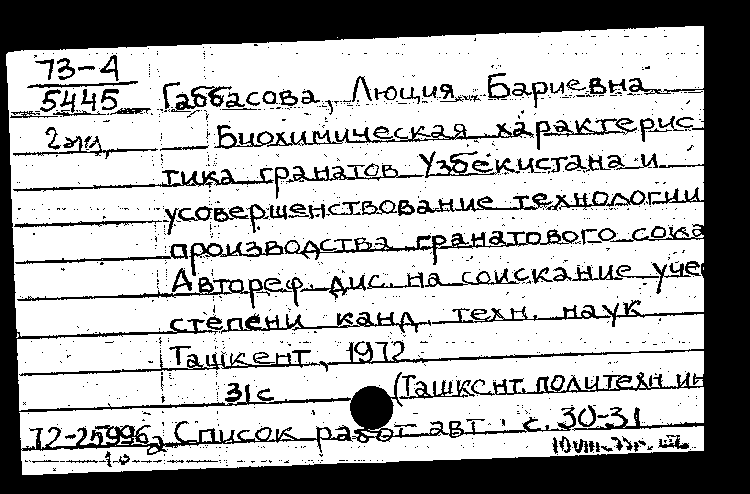 73-4
5445
Габбасова, Люция Бариевна
2 экз,
Биохимическая характерис
тика гранатов Узбекистана и
усовершенствование технологии
производства гранатового сока
Автореф. дис. на соискание уче
степени канд. техн. наук
Ташкент, 1972.
31 с
(Ташкент. политехн ин
72-25996
Список работ авт. : с. 30-31